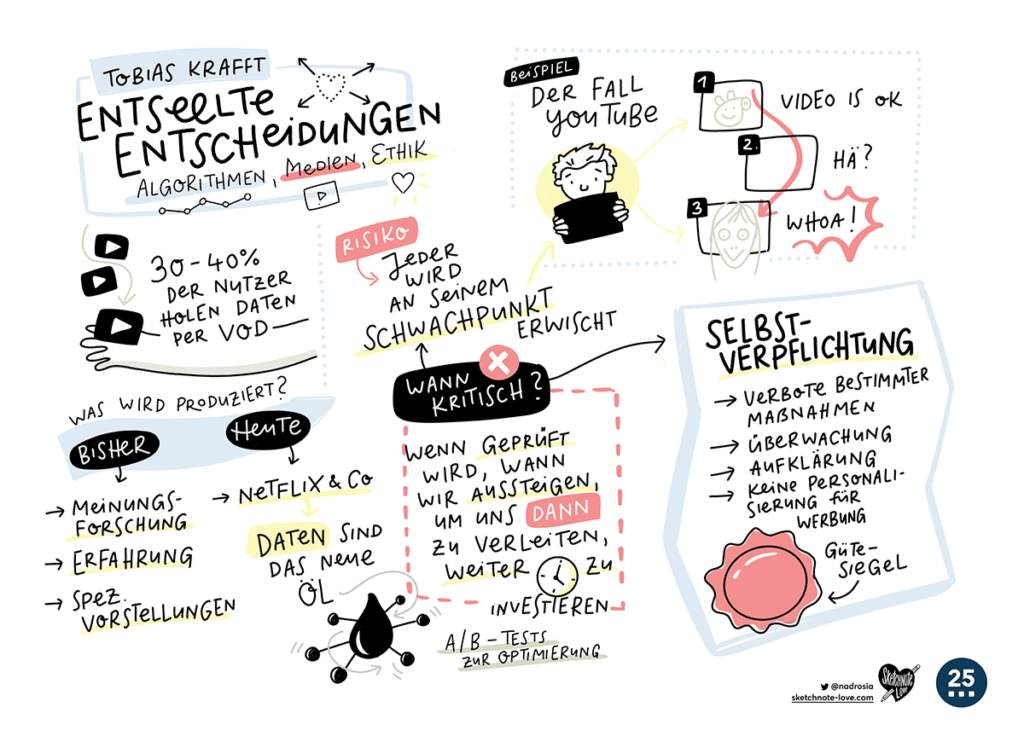 TOBIAS KRAFFT
ENTSEELTE
ENTSCHEIDUNGEN
ALGORITHMEN, MEDIEN, ETHIK
30-40%
DER NUTZER
HOLEN DATEN
PER VOD
WAS WIRD PRODUZIERT?
BISHER
→ MEINUNGS-
FORSCHUNG
→ ERFAHRUNG
→ SPEZ.
VORSTELLUNGEN
HEUTE
→ NETFLIX & CO
DATEN SIND
DAS NEUE
ÖL
RISIKO
JEDER
WIRD
AN SEINEM
SCHWACHPUNKT
ERWISCHT
WANN
KRITISCH?
WENN GEPRÜFT
WIRD, WANN
WIR AUSSTEIGEN,
UM UNS DANN
ZU VERLEITEN,
WEITER ZU
INVESTIEREN
A/B-TESTS
ZUR OPTIMIERUNG
BEISPIEL
DER FALL
YOUTUBE
1
VIDEO IS OK
2.
HÄ?
3
WHOA!
SELBST-
VERPFLICHTUNG
→ VERBOTE BESTIMMTER
MAẞNAHMEN
→ ÜBERWACHUNG
→ AUFKLÄRUNG
→ KEINE PERSONALI-
SIERUNG FÜR
WERBUNG
GÜTE-
SIEGEL
@nadrosia
sketchnote-love.com
SKetcHNOte
LOVE
25